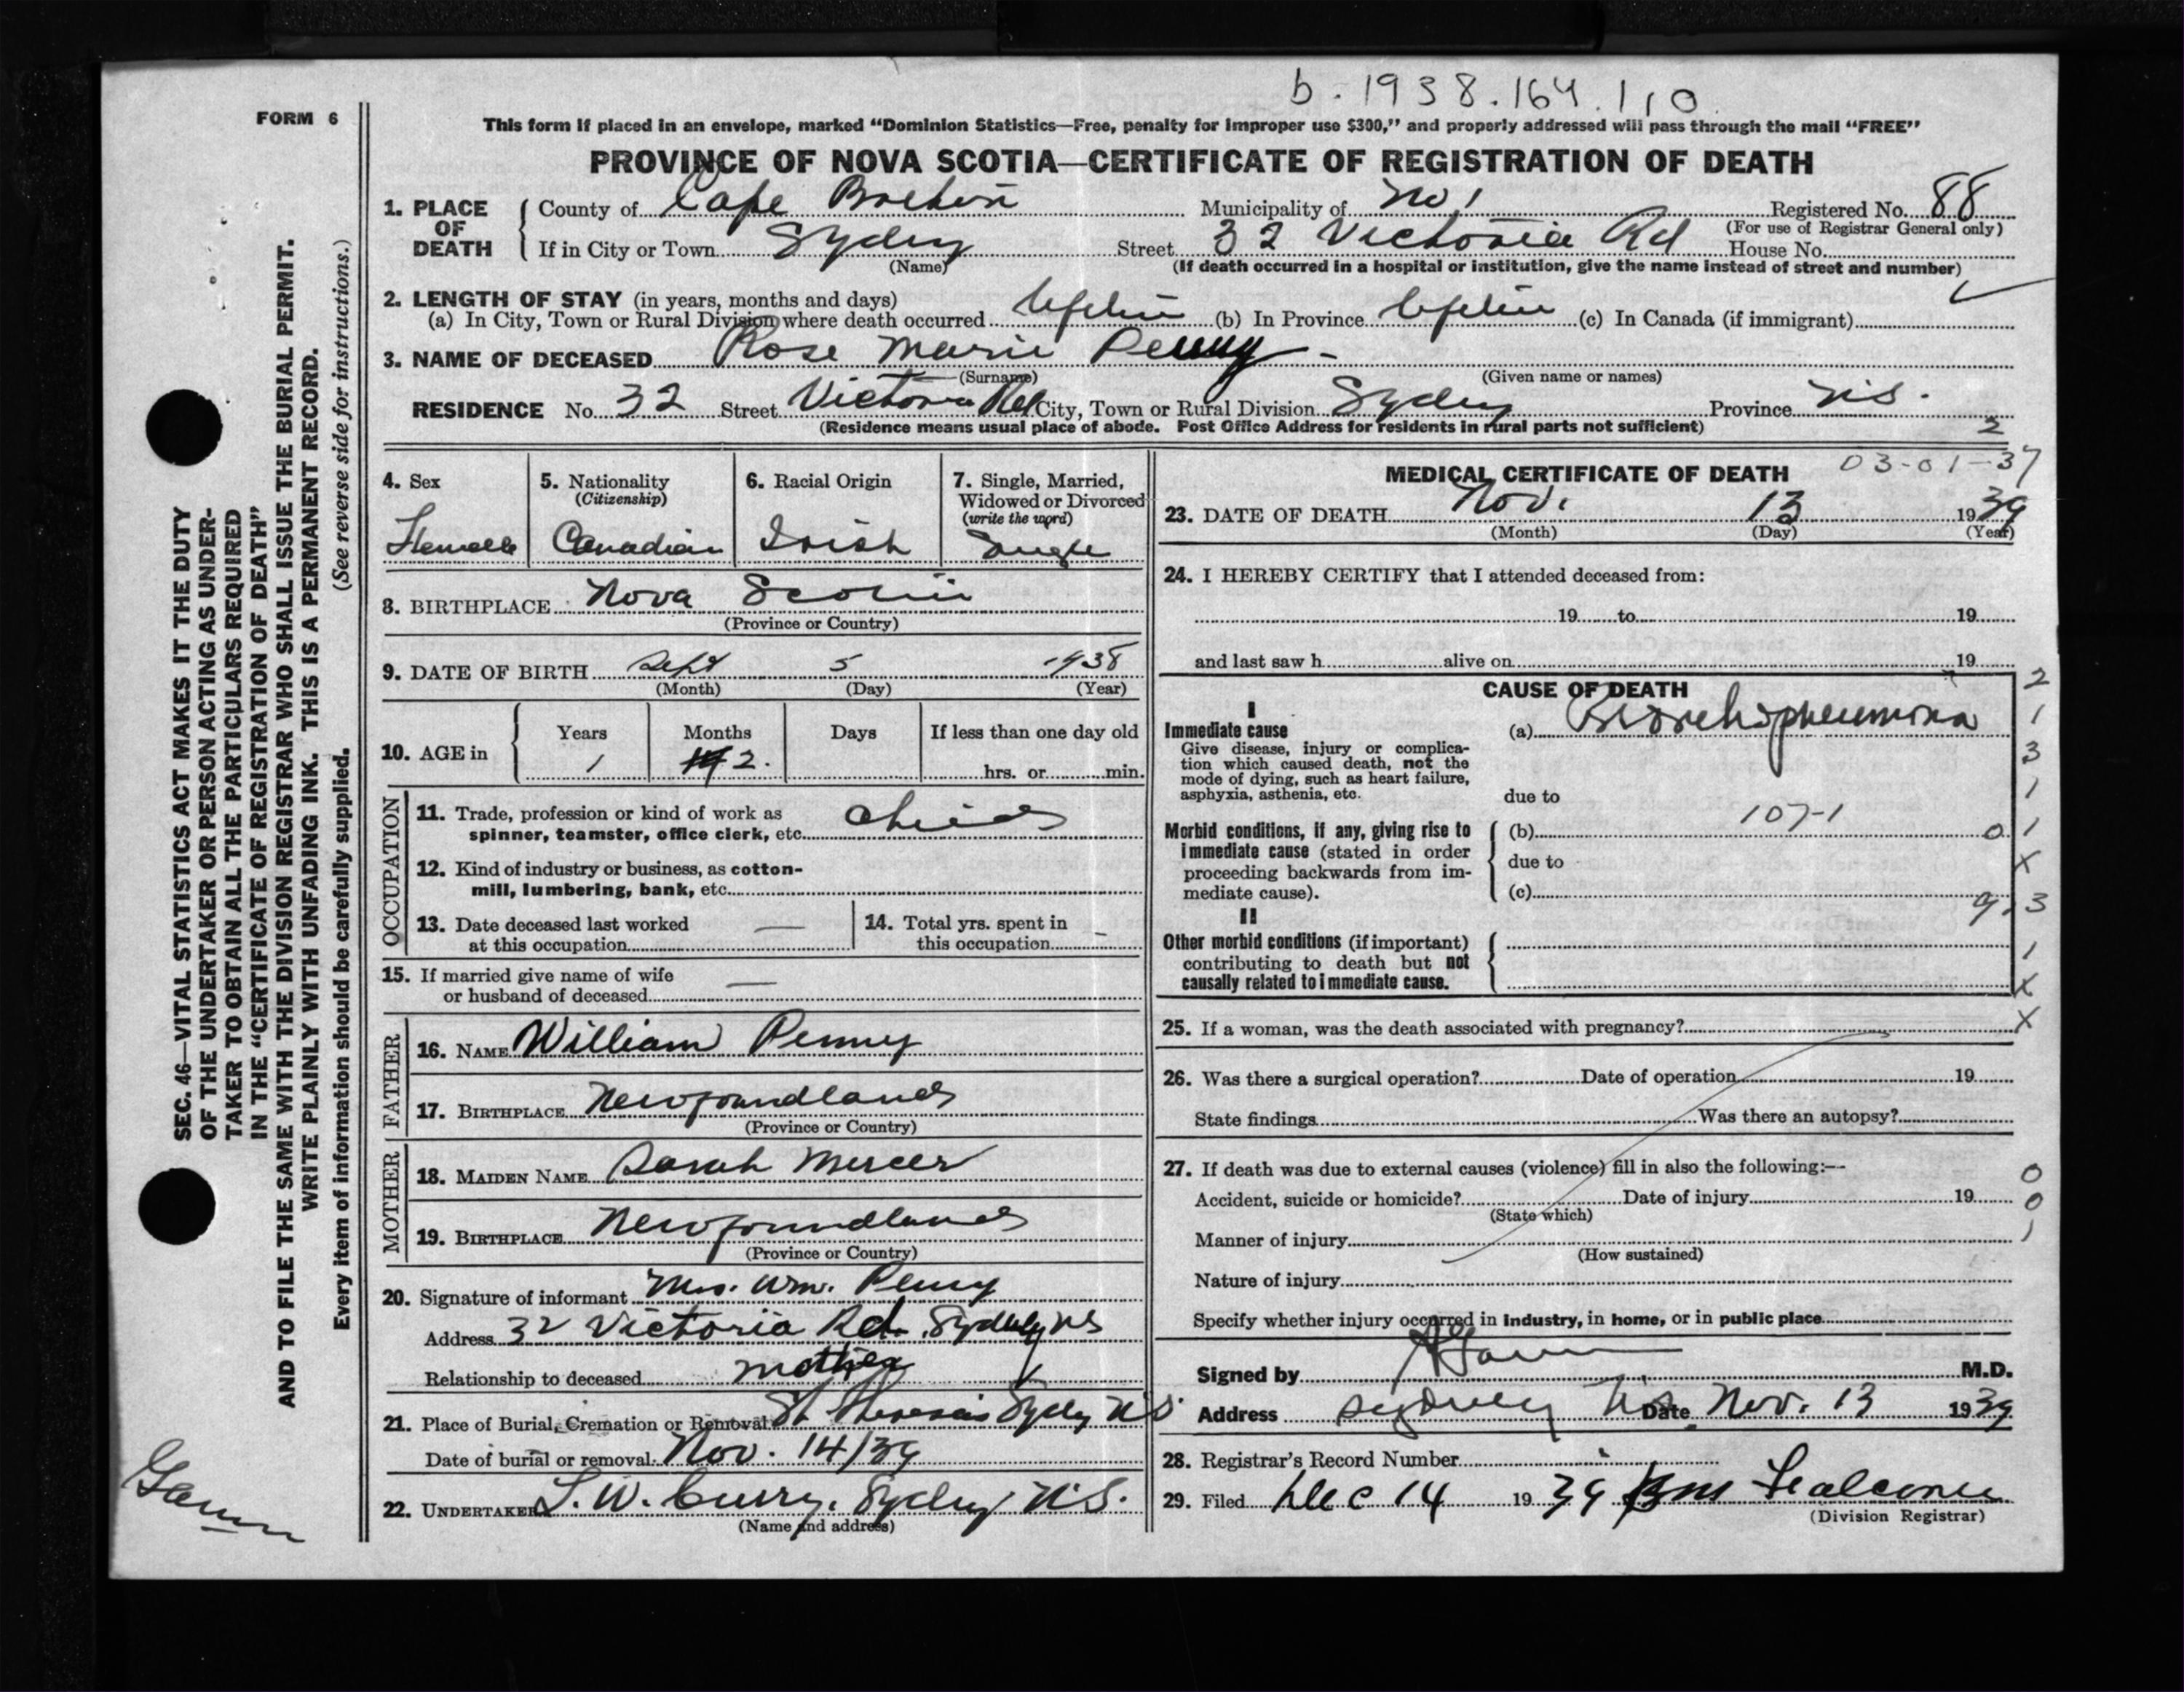 b. 1938.164.110
FORM 6
This form if placed in an envelope, marked "Dominion Statistics—Free, penalty for improper use $300," and properly addressed will pass through the mail "FREE"
PROVINCE OF NOVA SCOTIA—CERTIFICATE OF REGISTRATION OF DEATH
1. PLACE OF DEATH
County of Cape Breton Municipality of No 1 Registered No. 88
(For use of Registrar General only)
If in City or Town Sydney Street 32 Victoria Rd House No.
(Name) (If death occurred in a hospital or institution, give the name instead of street and number)
2. LENGTH OF STAY (in years, months and days)
(a) In City, Town or Rural Division where death occurred Lifetime (b) In Province Lifetime (c) In Canada (if immigrant)
3. NAME OF DECEASED Rose Marie Penny
(Surname) (Given name or names)
RESIDENCE No. 32 Street Victoria Rd City, Town or Rural Division Sydney Province N.S.
(Residence means usual place of abode. Post Office Address for residents in rural parts not sufficient)
2
4. Sex
Female
5. Nationality
(Citizenship)
Canadian
6. Racial Origin
Irish
7. Single, Married,
Widowed or Divorced
(write the word)
Single
8. BIRTHPLACE Nova Scotia
(Province or Country)
9. DATE OF BIRTH Sept 5 1938
(Month) (Day) (Year)
10. AGE in
Years Months Days If less than one day old
1 2. hrs. or min.
OCCUPATION
11. Trade, profession or kind of work as
spinner, teamster, office clerk, etc. Child
12. Kind of industry or business, as cotton-
mill, lumbering, bank, etc.
13. Date deceased last worked
at this occupation —
14. Total yrs. spent in
this occupation —
15. If married give name of wife
or husband of deceased —
FATHER
16. NAME William Penny
17. BIRTHPLACE Newfoundland
(Province or Country)
MOTHER
18. MAIDEN NAME Sarah Mercer
19. BIRTHPLACE Newfoundland
(Province or Country)
20. Signature of informant Mrs. Wm. Penny
Address 32 Victoria Rd. Sydney NS
Relationship to deceased mother
21. Place of Burial, Cremation or Removal St Theresa's Sydney N.S.
Date of burial or removal Nov. 14/39
22. UNDERTAKER L. W. Curry, Sydney N.S.
(Name and address)
MEDICAL CERTIFICATE OF DEATH 03-01-37
23. DATE OF DEATH Nov. 13 1939
(Month) (Day) (Year)
24. I HEREBY CERTIFY that I attended deceased from:
19 to 19
and last saw h alive on 19
CAUSE OF DEATH
I
Immediate cause
Give disease, injury or complica-
tion which caused death, not the
mode of dying, such as heart failure,
asphyxia, asthenia, etc.
(a) Bronchopneumonia
due to
107-1
Morbid conditions, if any, giving rise to
immediate cause (stated in order
proceeding backwards from im-
mediate cause).
(b)
due to
(c)
II
Other morbid conditions (if important)
contributing to death but not
causally related to immediate cause.
2
1
3
1
0 1
X
9. 3
1
X
X
25. If a woman, was the death associated with pregnancy?
26. Was there a surgical operation? Date of operation 19
State findings Was there an autopsy?
27. If death was due to external causes (violence) fill in also the following:—
Accident, suicide or homicide? Date of injury 19
(State which)
Manner of injury
(How sustained)
Nature of injury
Specify whether injury occurred in industry, in home, or in public place
0
0
1
Signed by M.D.
Address Sydney N.S. Date Nov. 13 1939
28. Registrar's Record Number
29. Filed Dec 14 1939 Falconer
(Division Registrar)
SEC. 46—VITAL STATISTICS ACT MAKES IT THE DUTY
OF THE UNDERTAKER OR PERSON ACTING AS UNDER-
TAKER TO OBTAIN ALL THE PARTICULARS REQUIRED
IN THE "CERTIFICATE OF REGISTRATION OF DEATH"
AND TO FILE THE SAME WITH THE DIVISION REGISTRAR WHO SHALL ISSUE THE BURIAL PERMIT.
WRITE PLAINLY WITH UNFADING INK. THIS IS A PERMANENT RECORD.
Every item of information should be carefully supplied. (See reverse side for instructions.)